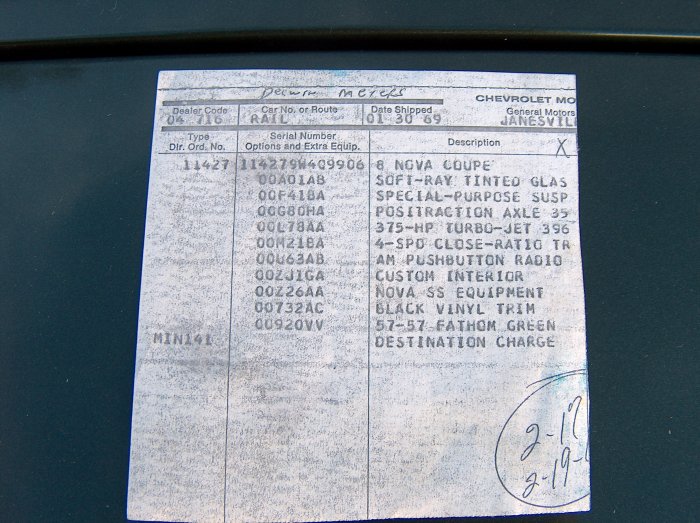 Delwin Meyers
CHEVROLET MO
Dealer Code Car No. or Route Date Shipped General Motors
04 716 RAIL 01 30 69 JANESVIL
Type Serial Number Description X
Dlr. Ord. No. Options and Extra Equip.
11427 114279W409906 8 NOVA COUPE
00A01AB SOFT-RAY TINTED GLAS
00F41BA SPECIAL-PURPOSE SUSP
00G80HA POSITRACTION AXLE 35
00L78AA 375-HP TURBO-JET 396
00M21BA 4-SPD CLOSE-RATIO TR
00U63AB AM PUSHBUTTON RADIO
00ZJ1GA CUSTOM INTERIOR
00Z26AA NOVA SS EQUIPMENT
00732AC BLACK VINYL TRIM
00920VV 57-57 FATHOM GREEN
MIN141 DESTINATION CHARGE
2-19
2-19-